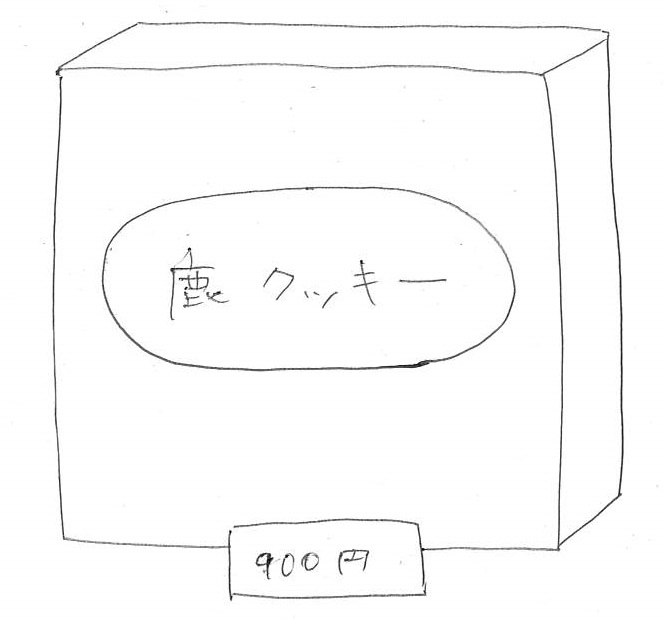 鹿クッキー
900円